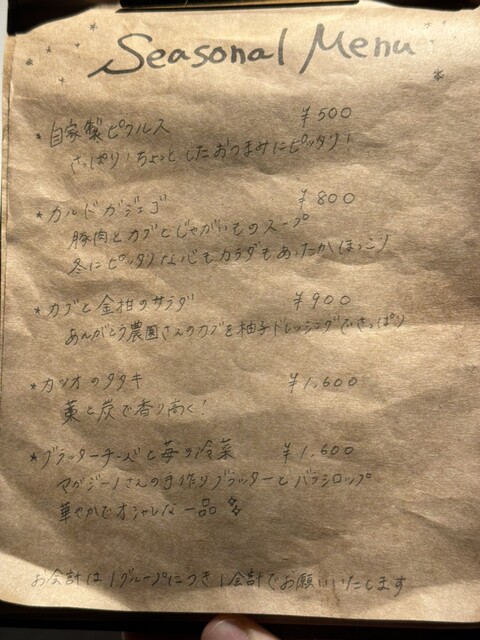 Seasonal Menu
* 自家製ピクルス ¥500
さっぱり!ちょっとしたおつまみにピッタリ!
* カルドガジェゴ ¥800
豚肉とカブとじゃがいものスープ
冬にピッタリな心もカラダもあったかほっこり
* カブと金柑のサラダ ¥900
あんがとう農園さんのカブを柚子ドレッシングでさっぱり
* カツオのタタキ ¥1,600
藁と炭で香り高く!
* ブラッターチーズと苺の冷菜 ¥1,600
マガジーノさんの手作りブラッターとバラシロップ
華やかでオシャレな一品
お会計は1グループにつき1会計でお願いいたします